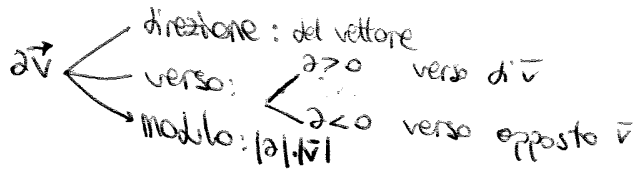 direzione: del vettore
a>0 verso di v̄
av⃗ verso:
a<0 verso opposto v̄
modulo: |a|·|v̄|